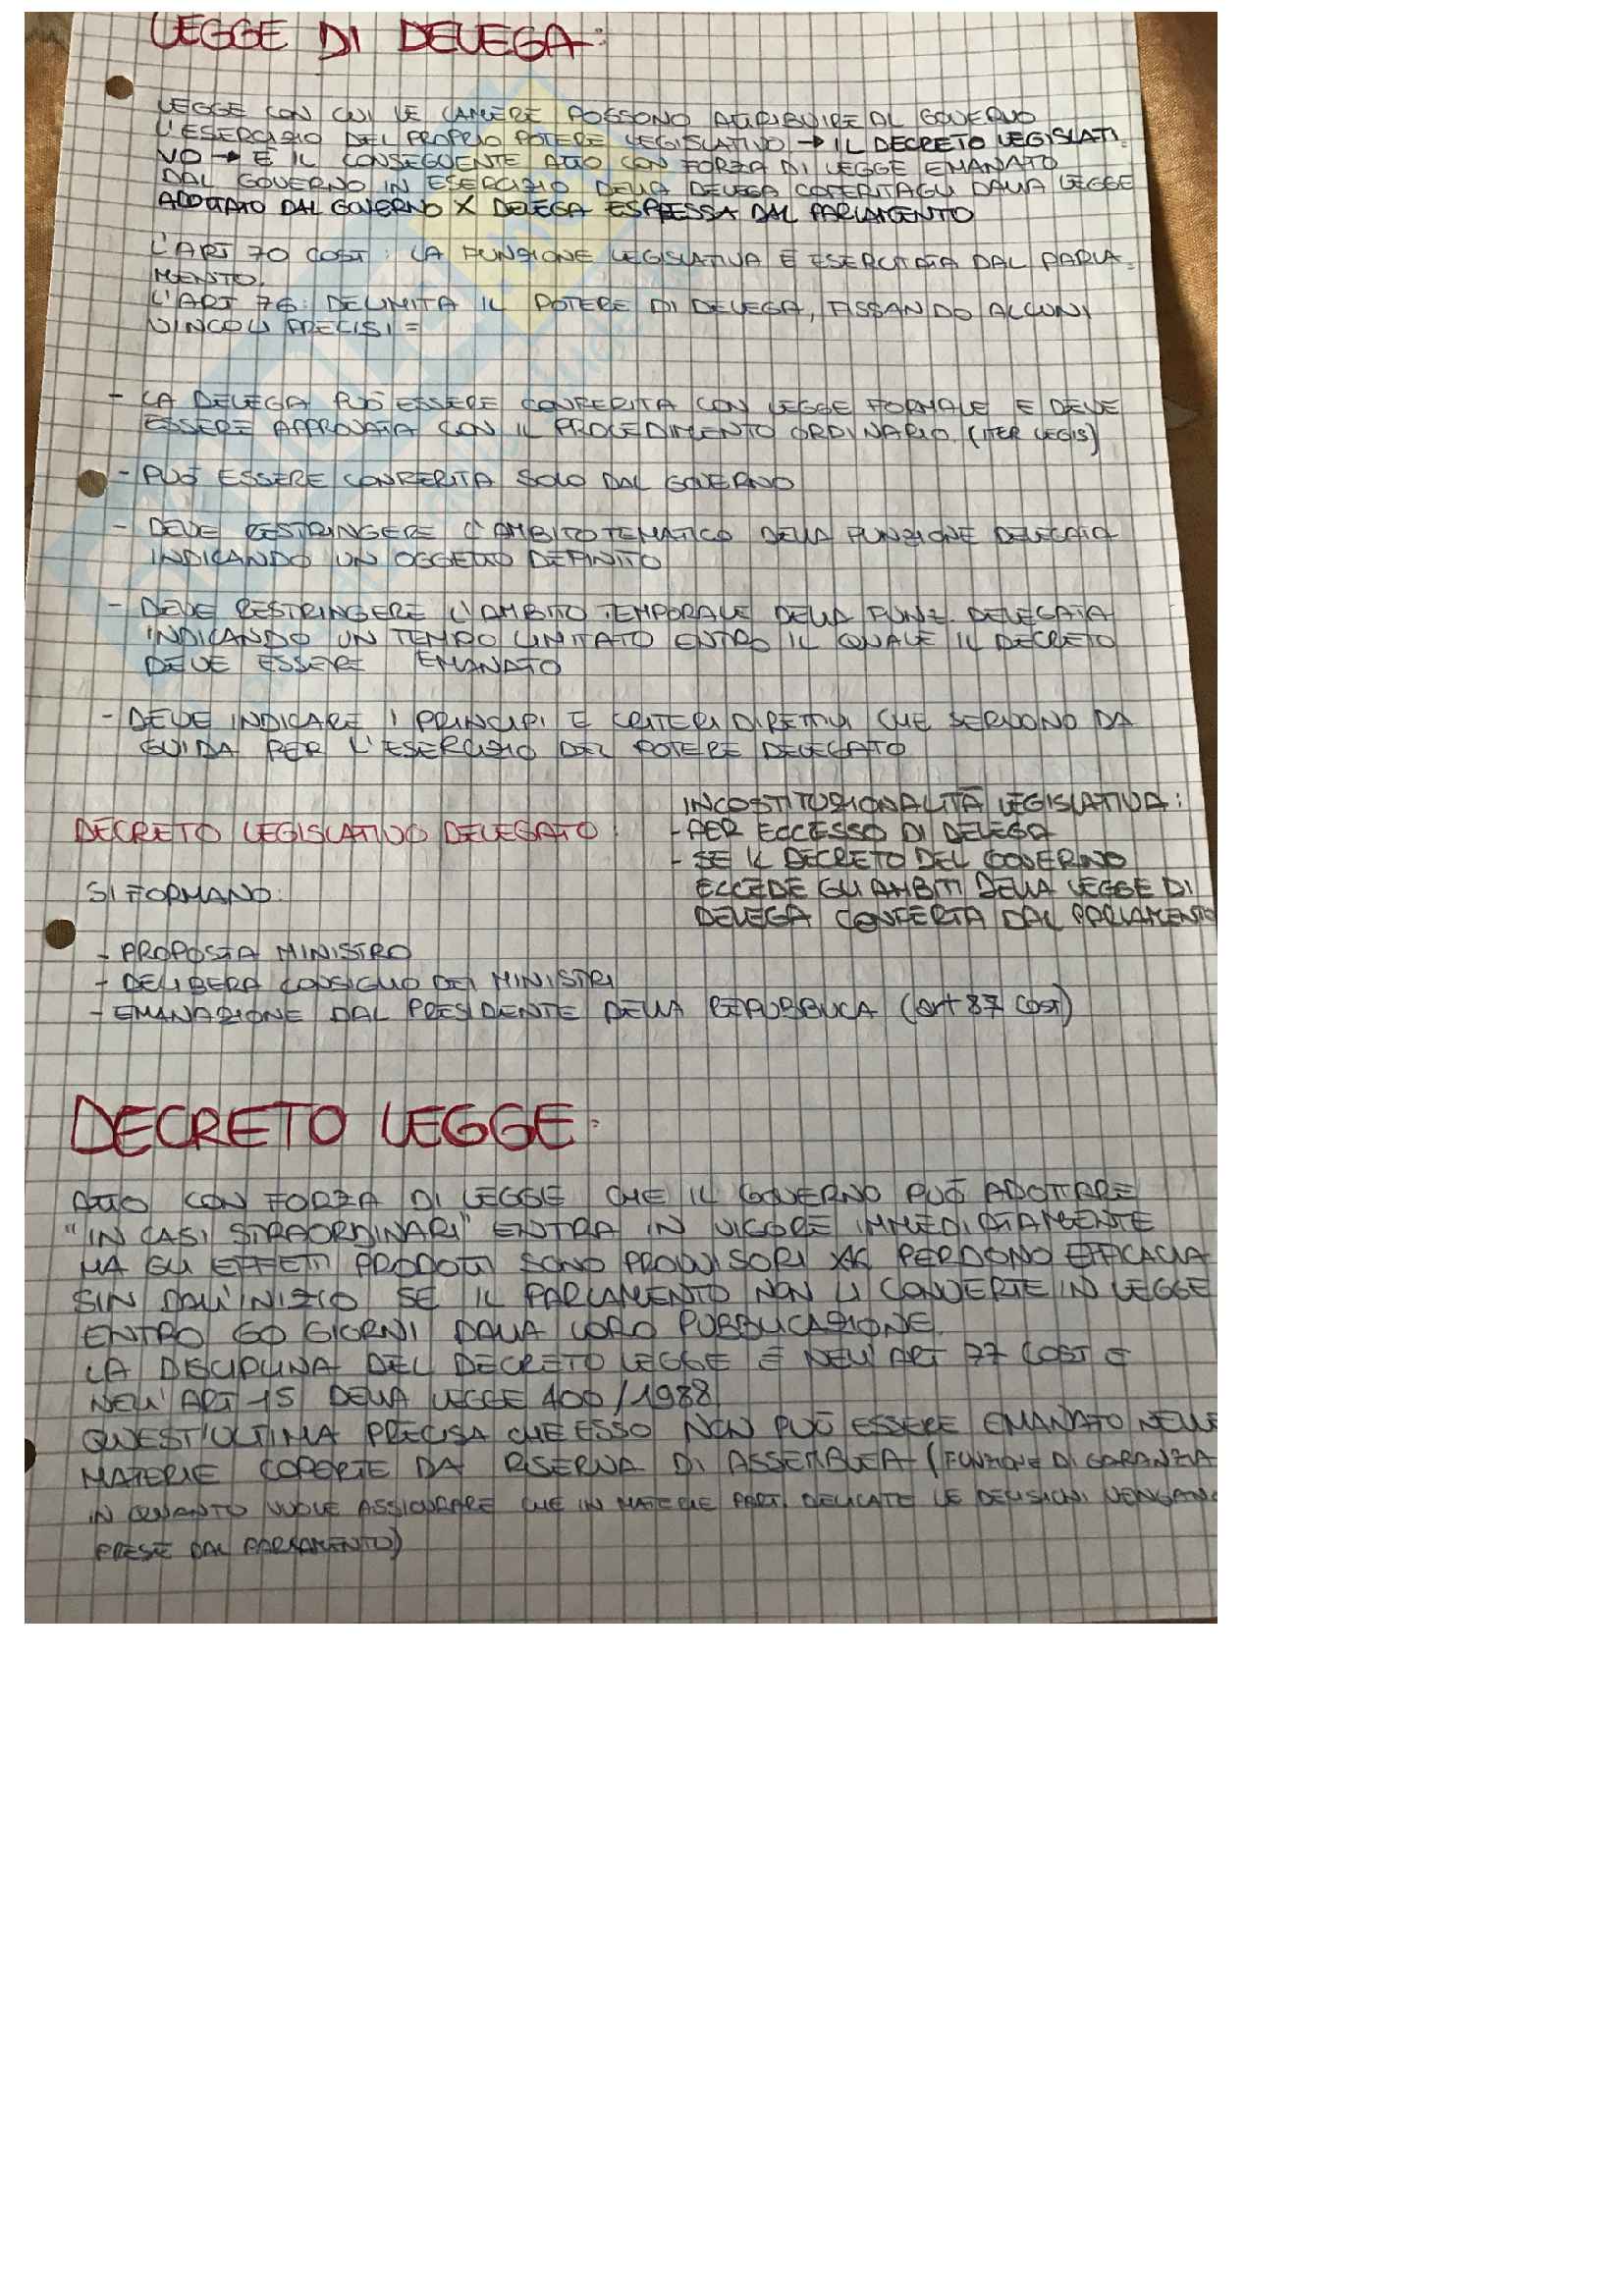 LEGGE DI DELEGA:
LEGGE CON CUI LE CAMERE POSSONO ATTRIBUIRE AL GOVERNO
L'ESERCIZIO DEL PROPRIO POTERE LEGISLATIVO → IL DECRETO LEGISLATI
VO → È IL CONSEGUENTE ATTO CON FORZA DI LEGGE EMANATO
DAL GOVERNO IN ESERCIZIO DELLA DELEGA COFERITAGLI DALLA LEGGE
ADOTTATO DAL GOVERNO X DELEGA ESPRESSA DAL PARLAMENTO
L'ART 70 COST: LA FUNZIONE LEGISLATIVA È ESERCITATA DAL PARLA-
MENTO.
L'ART 76: DELIMITA IL POTERE DI DELEGA, FISSANDO ALCUNI
VINCOLI PRECISI =
- LA DELEGA PUÒ ESSERE CONFERITA CON LEGGE FORMALE E DEVE
ESSERE APPROVATA CON IL PROCEDIMENTO ORDINARIO. (ITER LEGIS)
- PUÒ ESSERE CONFERITA SOLO DAL GOVERNO
- DEVE RESTRINGERE L'AMBITO TEMATICO DELLA FUNZIONE DELEGATA
INDICANDO UN OGGETTO DEFINITO
- DEVE RESTRINGERE L'AMBITO TEMPORALE DELLA FUNZ. DELEGATA
INDICANDO UN TEMPO LIMITATO ENTRO IL QUALE IL DECRETO
DEVE ESSERE EMANATO
- DEVE INDICARE I PRINCIPI E CRITERI DIRETTIVI CHE SERVONO DA
GUIDA PER L'ESERCIZIO DEL POTERE DELEGATO
INCOSTITUZIONALITÀ LEGISLATIVA:
- PER ECCESSO DI DELEGA
- SE IL DECRETO DEL GOVERNO
ECCEDE GLI AMBITI DELLA LEGGE DI
DELEGA CONFERTA DAL PARLAMENTO
DECRETO LEGISLATIVO DELEGATO:
SI FORMANO:
- PROPOSTA MINISTRO
- DELIBERA CONSIGLIO DEI MINISTRI
- EMANAZIONE DAL PRESIDENTE DELLA REPUBBLICA (art 87 COST)
DECRETO LEGGE:
ATTO CON FORZA DI LEGGE CHE IL GOVERNO PUÒ ADOTTARE
"IN CASI STRAORDINARI" ENTRA IN VIGORE IMMEDIATAMENTE
MA GLI EFFETTI PRODOTTI SONO PROVVISORI XK PERDONO EFFICACIA
SIN DALL'INIZIO SE IL PARLAMENTO NON LI CONVERTE IN LEGGE
ENTRO 60 GIORNI DALLA LORO PUBBLICAZIONE.
LA DISCIPLINA DEL DECRETO LEGGE È NELL'ART 77 COST E
NELL'ART 15 DELLA LEGGE 400/1988
QUEST'ULTIMA PRECISA CHE ESSO NON PUÒ ESSERE EMANATO NELLE
MATERIE COPERTE DA RISERVA DI ASSEMBLEA (FUNZIONE DI GARANZIA
IN QUANTO VUOLE ASSICURARE CHE IN MATERIE PART. DELICATE LE DECISIONI VENGANO
PRESE DAL PARLAMENTO)